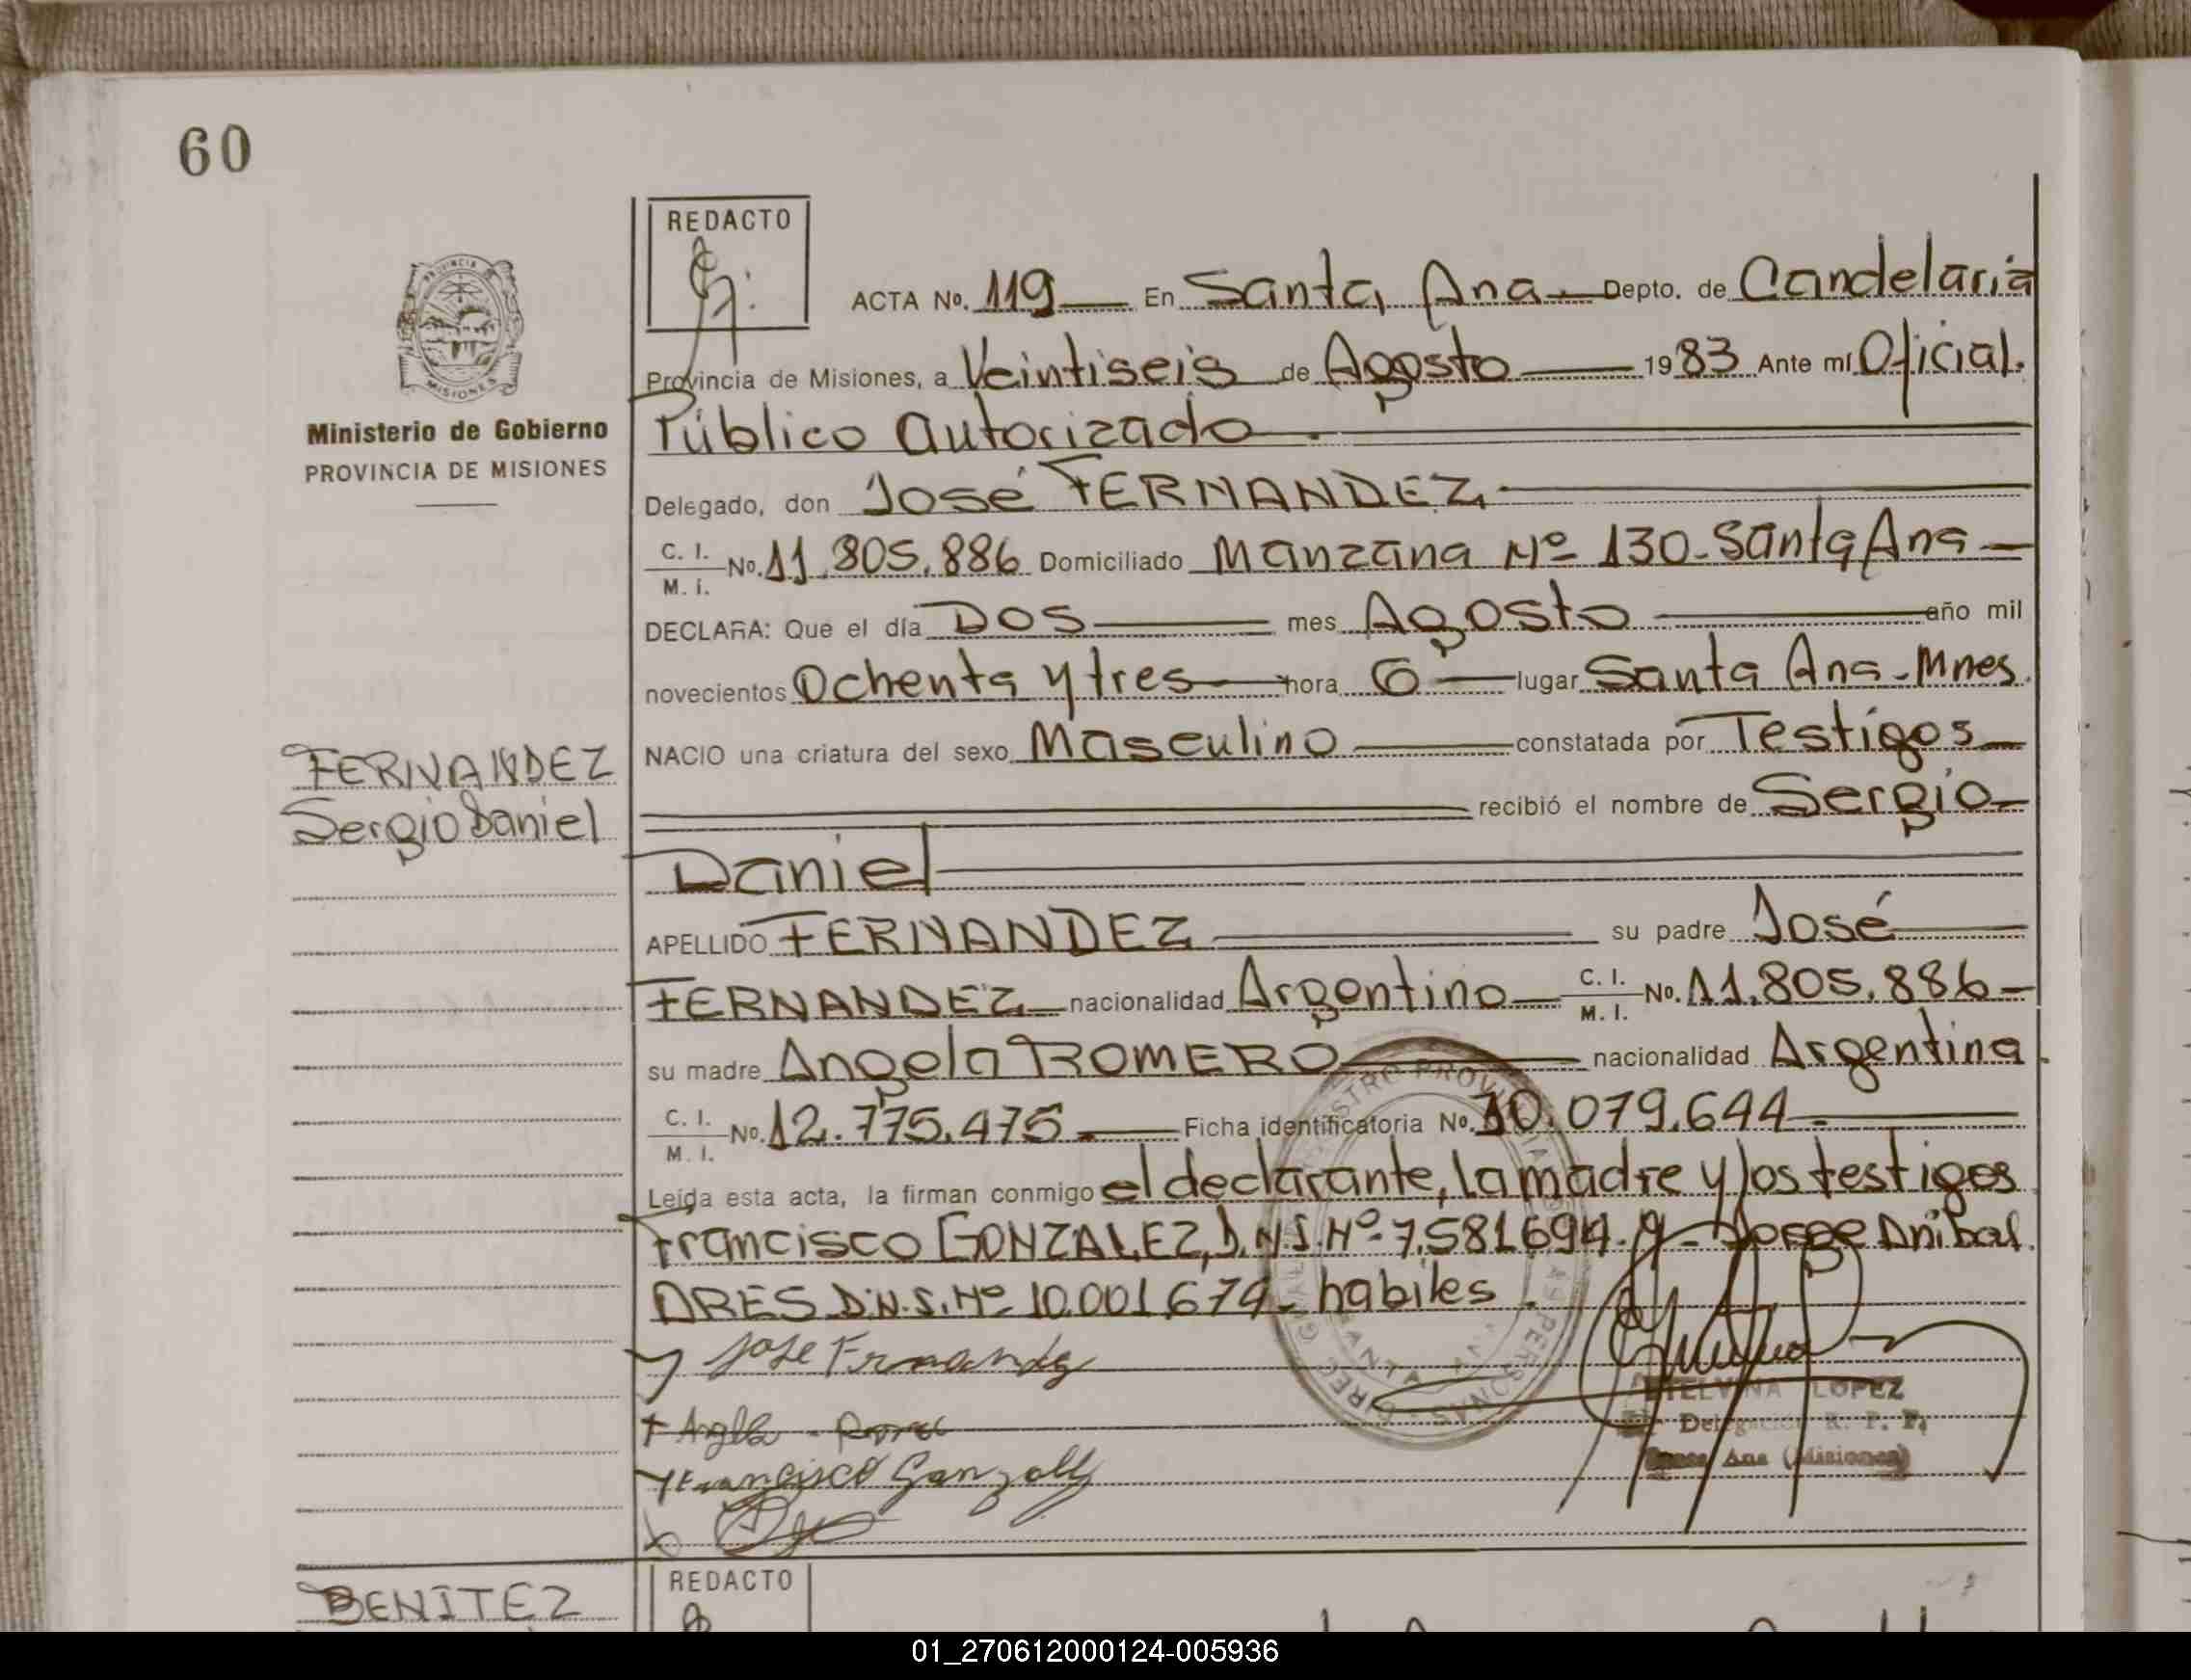 60
REDACTO
ACTA No. 119 En Santa Ana Depto. de Candelaria
Provincia de Misiones, a Veintiseis de Agosto 1983 Ante mí Oficial.
Público autorizado.
Delegado, don José FERNANDEZ
C. I.
M. I.
No. 11.805.886 Domiciliado Manzana Nº 130-Santa Ana
DECLARA: Que el día Dos mes Agosto año mil
novecientos Ochenta y tres hora 6 lugar Santa Ana-Mnes.
NACIO una criatura del sexo Masculino constatada por Testigos
recibió el nombre de Sergio
Daniel
APELLIDO FERNANDEZ su padre José
FERNANDEZ nacionalidad Argentino C. I.
M. I. No. 11.805.886
su madre Angela ROMERO nacionalidad Argentina.
C. I.
M. I.
No. 12.775.475 Ficha identificatoria No. 30.079.644
Leída esta acta, la firman conmigo el declarante, la madre y los testigos
Francisco GONZALEZ, D.N.I. Nº 7.581694 y Jorge Anibal
ARES D.N.I. Nº 10.001.674 habiles.
Jose Fernandez
Francisco Gonzalez
ETELVINA LOPEZ
Delegación R. P. P.
Santa Ana (Misiones)
PROVINCIA DE
MISIONES
Ministerio de Gobierno
PROVINCIA DE MISIONES
FERNANDEZ
Sergio Daniel
BENITEZ
REDACTO
01_270612000124-005936